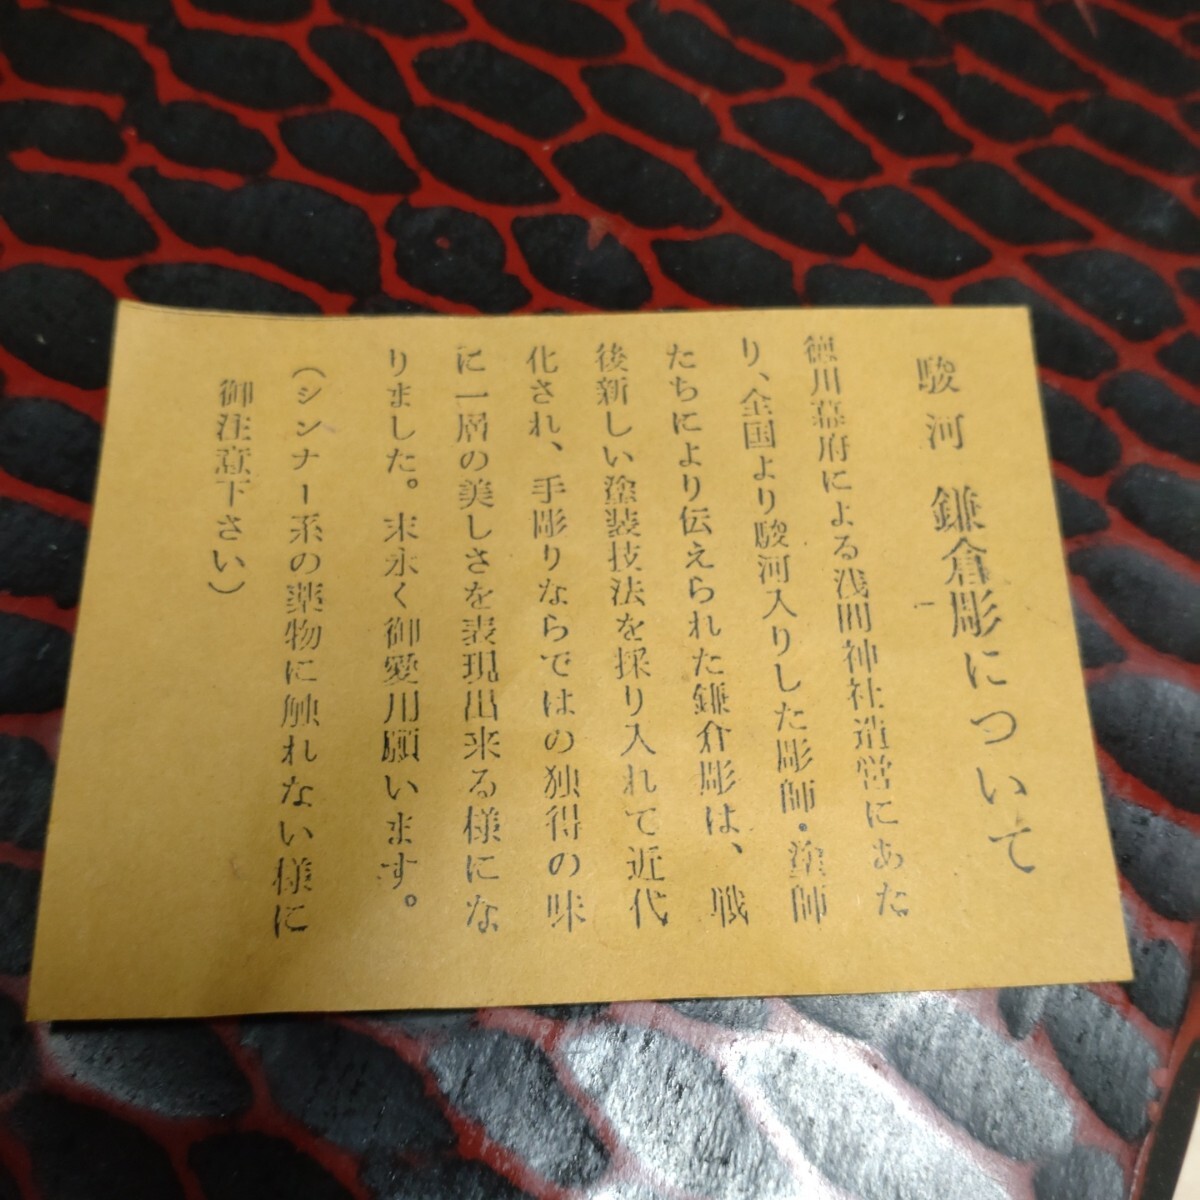 駿河 鎌倉彫について
徳川幕府による浅間神社造営にあた
り、全国より駿河入りした彫師・塗師
たちにより伝えられた鎌倉彫は、戦
後新しい塗装技法を採り入れて近代
化され、手彫りならではの独得の味
に一層の美しさを表現出来る様にな
りました。末永く御愛用願います。
(シンナー系の薬物に触れない様に
御注意下さい)